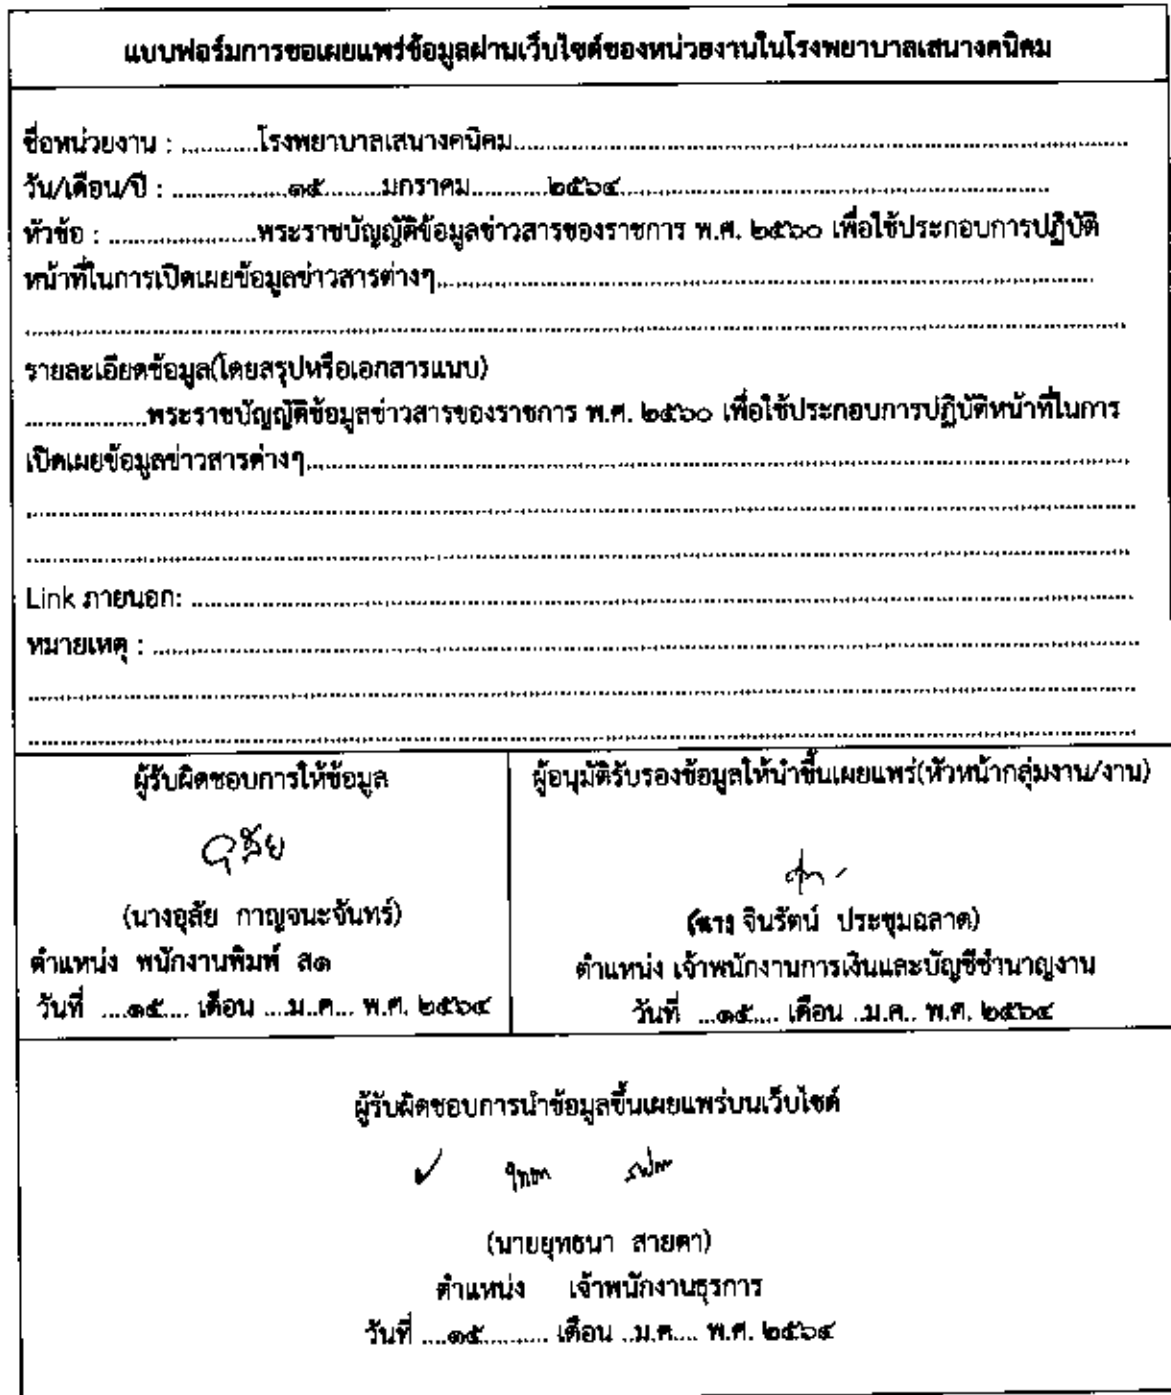 แบบฟอร์มการขอเผยแพร่ข้อมูลผ่านเว็บไซต์ของหน่วยงานในโรงพยาบาลเสนางคนิคม
ชื่อหน่วยงาน : ............โรงพยาบาลเสนางคนิคม............
วัน/เดือน/ปี : ............๑๕.........มกราคม............๒๕๖๔............
หัวข้อ : ............พระราชบัญญัติข้อมูลข่าวสารของราชการ พ.ศ. ๒๕๖๐ เพื่อใช้ประกอบการปฏิบัติ
หน้าที่ในการเปิดเผยข้อมูลข่าวสารต่างๆ............
รายละเอียดข้อมูล(โดยสรุปหรือเอกสารแนบ)
............พระราชบัญญัติข้อมูลข่าวสารของราชการ พ.ศ. ๒๕๖๐ เพื่อใช้ประกอบการปฏิบัติหน้าที่ในการ
เปิดเผยข้อมูลข่าวสารต่างๆ............
Link ภายนอก: ............
หมายเหตุ : ............
ผู้รับผิดชอบการให้ข้อมูล
อุลัย
(นางอุลัย กาญจนะจันทร์)
ตำแหน่ง พนักงานพิมพ์ ส๑
วันที่ ....๑๕.... เดือน ....ม..ค... พ.ศ. ๒๕๖๔
ผู้อนุมัติรับรองข้อมูลให้นำขึ้นเผยแพร่(หัวหน้ากลุ่มงาน/งาน)
(นาง จินรัตน์ ประชุมฉลาด)
ตำแหน่ง เจ้าพนักงานการเงินและบัญชีชำนาญงาน
วันที่ ...๑๕.... เดือน ..ม.ค.. พ.ศ. ๒๕๖๔
ผู้รับผิดชอบการนำข้อมูลขึ้นเผยแพร่บนเว็บไซต์
(นายยุทธนา สายตา)
ตำแหน่ง เจ้าพนักงานธุรการ
วันที่ ....๑๕.......... เดือน ..ม.ค.... พ.ศ. ๒๕๖๔